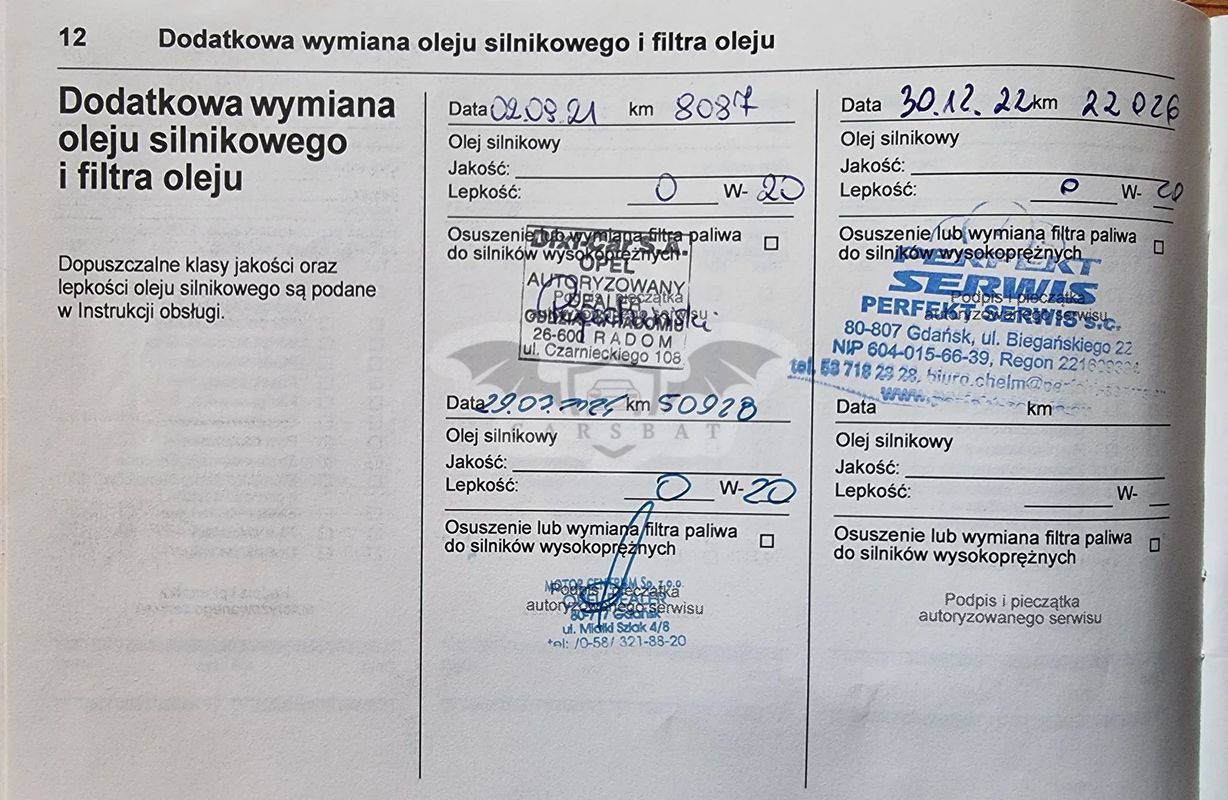 12 Dodatkowa wymiana oleju silnikowego i filtra oleju
Dodatkowa wymiana
oleju silnikowego
i filtra oleju
Dopuszczalne klasy jakości oraz
lepkości oleju silnikowego są podane
w Instrukcji obsługi.
Data 02.09.21 km 8087
Olej silnikowy
Jakość:
Lepkość: 0 W- 20
Osuszenie lub wymiana filtra paliwa
do silników wysokoprężnych
Dixi-Car S.A.
OPEL
AUTORYZOWANY
DEALER
Podpis i pieczątka
autoryzowanego serwisu
26-600 RADOM
ul. Czarnieckiego 108
Data 29.07. km 50928
CARSBAT
Olej silnikowy
Jakość:
Lepkość: 0 W- 20
Osuszenie lub wymiana filtra paliwa
do silników wysokoprężnych
MOTOR CENTRUM Sp. z o.o.
Podpis i pieczątka
OPEL DEALER
autoryzowanego serwisu
Gdańsk
ul. Miałki Szlak 4/8
tel: /0-58/ 321-88-20
Data 30.12.22 km 22026
Olej silnikowy
Jakość:
Lepkość: 0 W- 20
Osuszenie lub wymiana filtra paliwa
do silników wysokoprężnych
PERFEKT
SERWIS
Podpis i pieczątka
PERFEKT SERWIS s.c.
autoryzowanego serwisu
80-807 Gdańsk, ul. Biegańskiego 22
NIP 604-015-66-39, Regon
tel. 58 718 29 28,
www.
Data km
Olej silnikowy
Jakość:
Lepkość: W-
Osuszenie lub wymiana filtra paliwa
do silników wysokoprężnych
Podpis i pieczątka
autoryzowanego serwisu